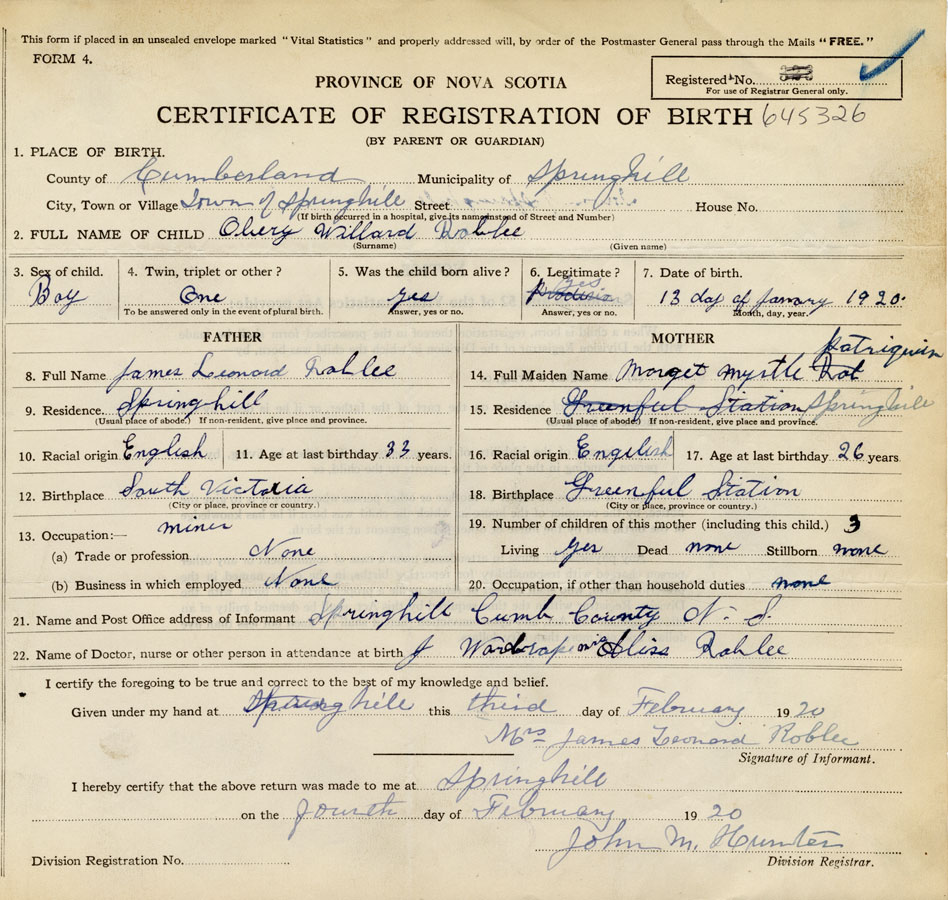 This form if placed in an unsealed envelope marked "Vital Statistics" and properly addressed will, by order of the Postmaster General pass through the Mails "FREE."
FORM 4.
Registered No.
For use of Registrar General only.
PROVINCE OF NOVA SCOTIA
CERTIFICATE OF REGISTRATION OF BIRTH 645326
(BY PARENT OR GUARDIAN)
1. PLACE OF BIRTH.
County of Cumberland Municipality of Springhill
City, Town or Village Town of Springhill Street House No.
(If birth occurred in a hospital, give its name instead of Street and Number)
2. FULL NAME OF CHILD Obery Willard Roblee
(Surname) (Given name)
3. Sex of child. 4. Twin, triplet or other? 5. Was the child born alive? 6. Legitimate? 7. Date of birth.
Boy One yes yes 13 day of January 1920.
To be answered only in the event of plural birth. Answer, yes or no. Answer, yes or no. Month, day, year.
FATHER MOTHER
8. Full Name James Leonard Roblee 14. Full Maiden Name Morget Myrtle Rob Patriquin
9. Residence. Springhill 15. Residence Greenful Station Springhill
(Usual place of abode.) If non-resident, give place and province. (Usual place of abode.) If non-resident, give place and province.
10. Racial origin English 11. Age at last birthday 33 years. 16. Racial origin English 17. Age at last birthday 26 years
12. Birthplace South Victoria 18. Birthplace Greenful Station
(City or place, province or country.) (City or place, province or country.)
13. Occupation:— miner 19. Number of children of this mother (including this child.) 3
(a) Trade or profession. None Living yes Dead none Stillborn none
(b) Business in which employed None 20. Occupation, if other than household duties none
21. Name and Post Office address of Informant Springhill Cumb County N. S.
22. Name of Doctor, nurse or other person in attendance at birth J Wardrope Bliss Roblee
I certify the foregoing to be true and correct to the best of my knowledge and belief.
Given under my hand at Springhill this third day of February 1920
Mrs James Leonard Roblee
Signature of Informant.
I hereby certify that the above return was made to me at Springhill
on the fourth day of February 1920
John M. Hunter
Division Registration No. Division Registrar.